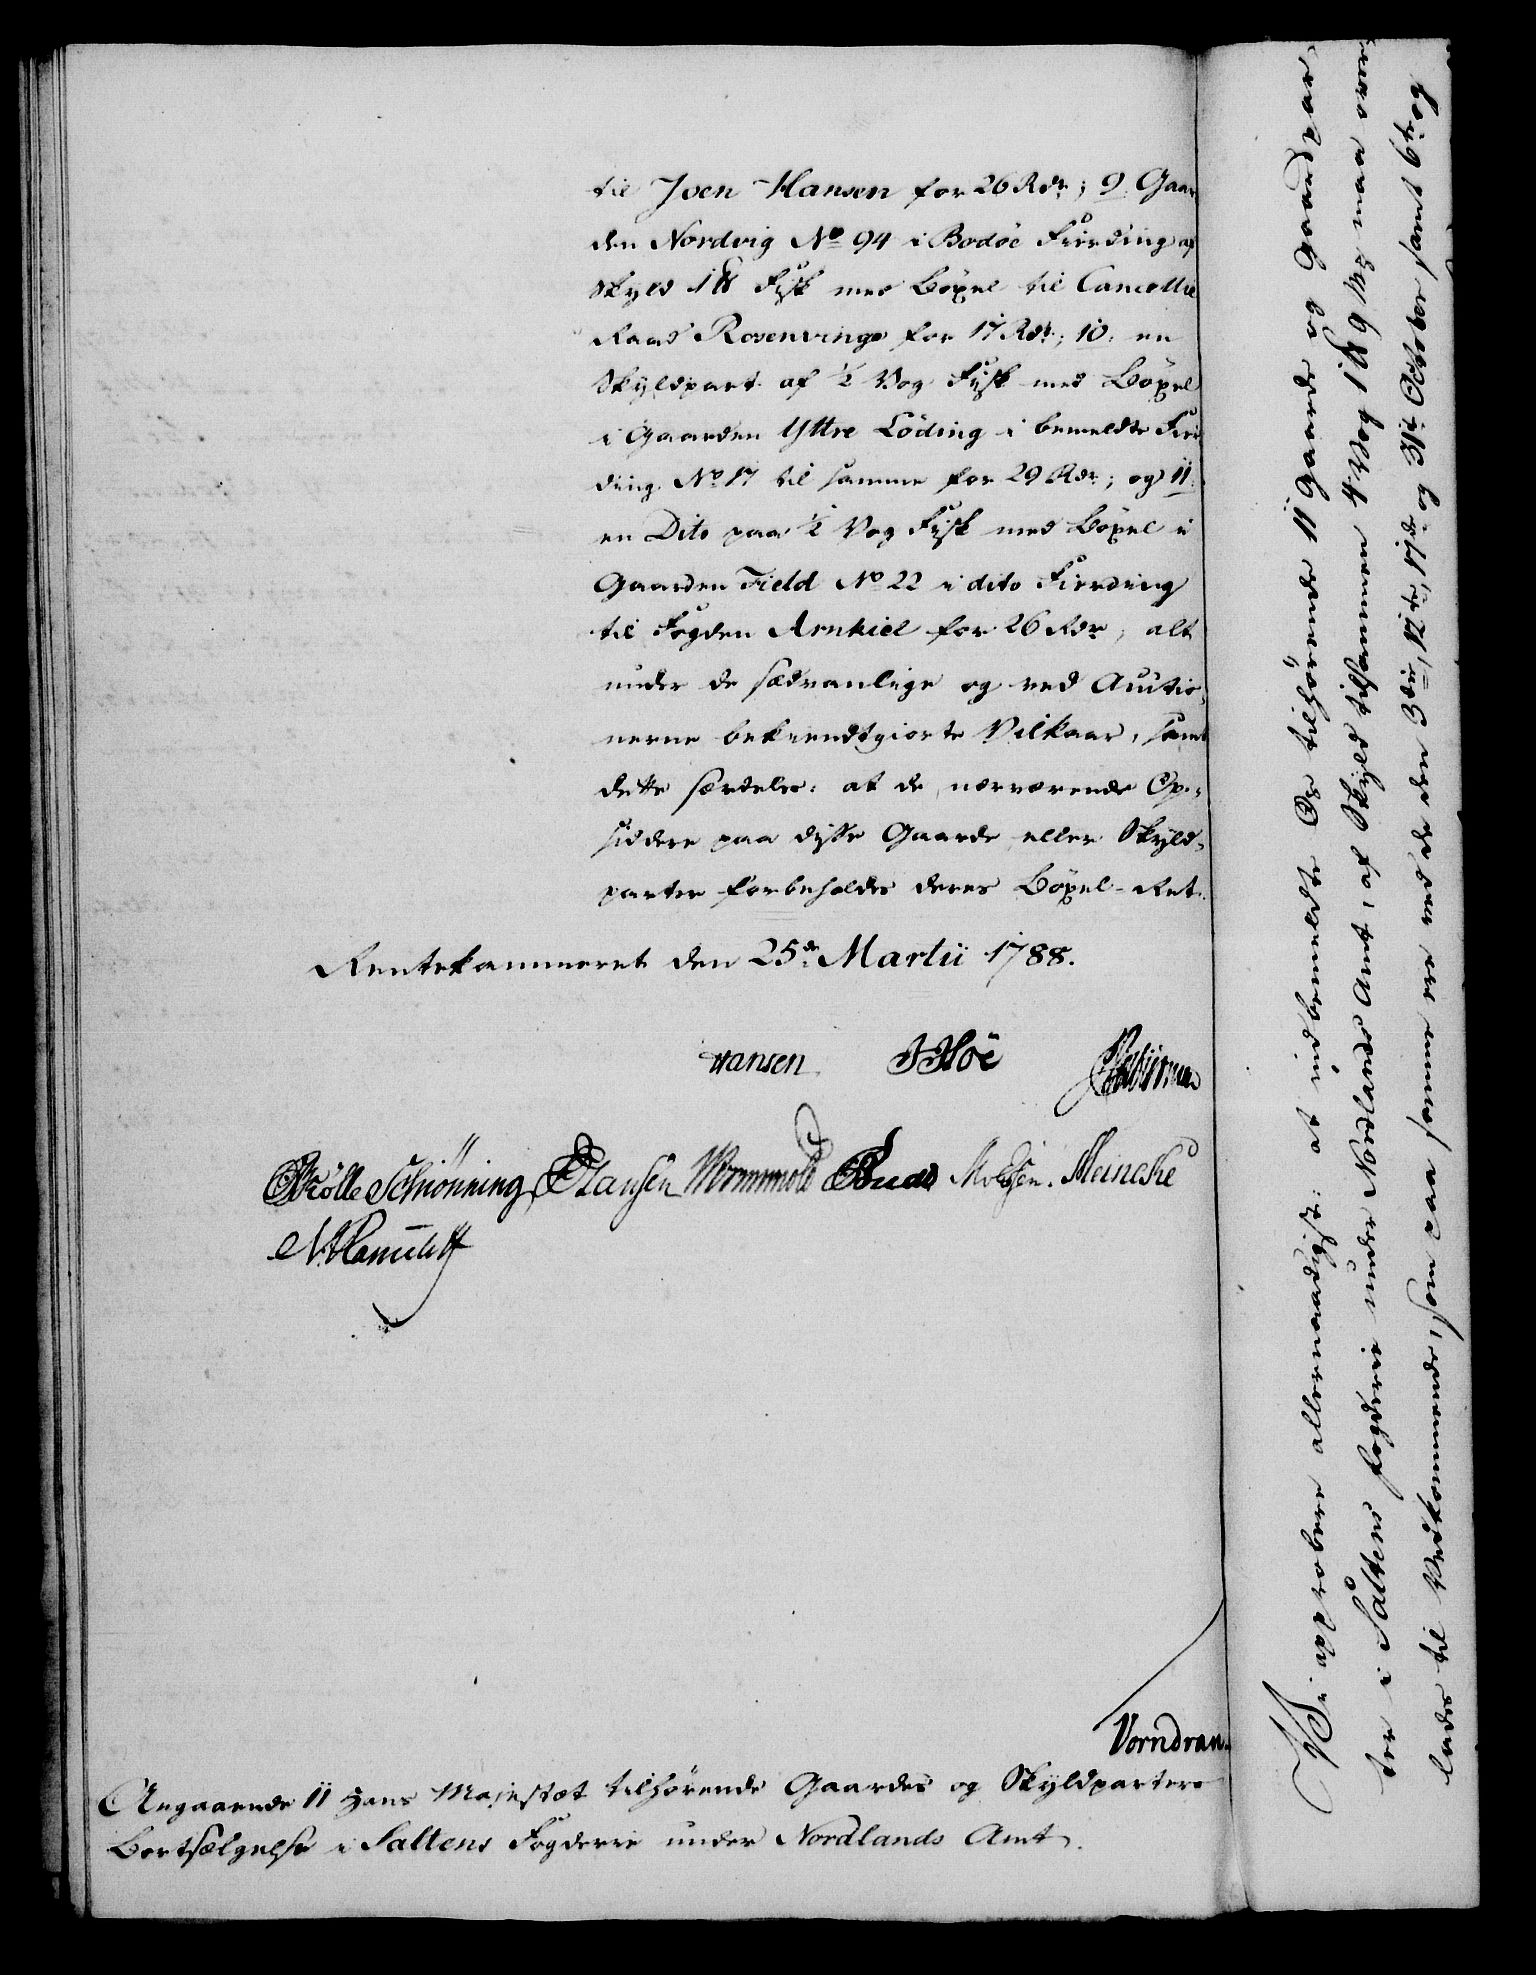 til Joen Hansen for 26 Rdr; 9, Gaar
den Nordvig No 94 i Bodöe Fierding af
Skyld 1 ℔ Fisk med Böxel til Cancellie
Raad Rosenvinge for 17 Rdr; 10, en
Skyldpart af ½ Vog Fisk med Böxel
i Gaarden Yttre Löding i bemeldte Fier
ding No 17 til samme for 29 Rdr; og 11,
en Dito paa ½ Vog Fisk med Böxel i
Gaarden Field No 22 i dito Fierding
til Fogden Arnkiel for 26 Rdr, alt
under de sædvanlige og ved Auctio-
nerne bekiendtgiorte Vilkaar, samt
dette særdeles: at de nærværende Op-
siddere paa disse Gaarde eller Skyld-
parter forbeholdes deres Böxel-Ret.
Rentekammeret den 25de Martii 1788.
Hansen JHöe
Trölle Schiönning Hansen Wormmold Bude Meineke
Vorndran.
Angaaende 11 Hans Majestæt tilhörende Gaardes og Skyldparters
Bortsælgelse i Saltens Fogderie under Nordlands Amt.
Vi approbere allernaadigst: at indbemeldte Os tilhörende 11 Gaarde og Gaardpar-
ter i Saltens Fogderie under Nordlands Amt, af Skyld tilsammen 4 Vog 1 ℔ 9 mk maa over-
lades til Vedkommende, som paa samme ere ved de den 3die, 12te, 17de og 31te October, samt 6te og